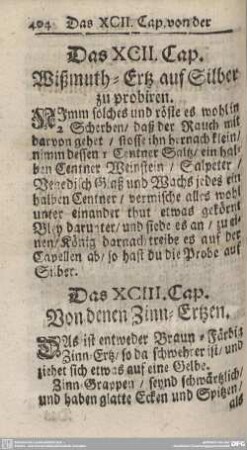 404 Das XCII. Cap. von der
Das XCII. Cap.
Wißmuth-Ertz auf Silber
zu probiren.
NImm solches und röste es wohl in
2 Scherben/ daß der Rauch mit
davon gehet / stosse ihn hernach klein/
nimm dessen 1 Centner Saltz/ ein hal-
ben Centner Weinstein / Salpeter /
Venedisch Glaß und Wachs jedes ein
halben Centner/ vermische alles wohl
unter einander thut etwas gekörnt
Bley darunter/ und siede es an/ zu ei-
nen/ König darnach treibe es auf der
Capellen ab/ so hast du die Probe auf
Silber.
Das XCIII. Cap.
Von denen Zinn-Ertzen.
DAs ist entweder Braun-Färbig
Zinn-Ertz/ so da schwehrer ist/ und
ziehet sich etwas auf eine Gelbe.
Zinn-Grappen / seynd schwärtzlich/
und haben glatte Ecken und Spitzen/
als